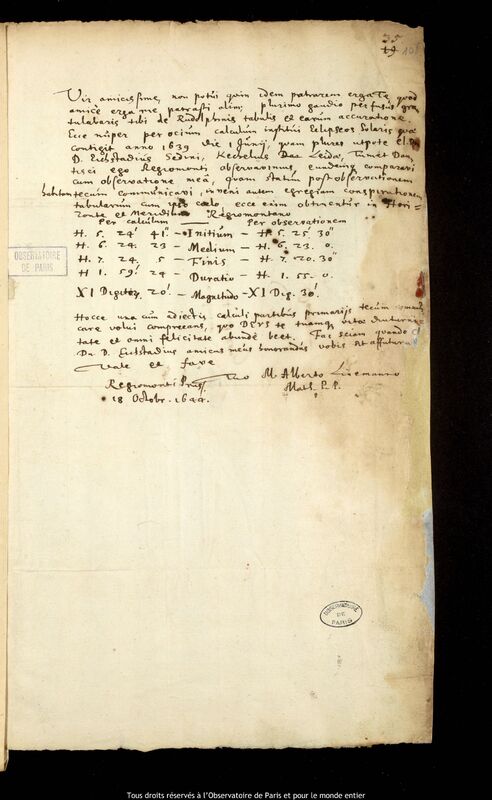 35
49 108
Vir amicissime, non potui quin idem patrarem erga Te, quod
amice erga me patrasti olim; plurimo gaudio perfusus gra
tulabaris tibi de Rudolphinis tabulis et earum accuratione.
Ecce nuper per otium calculum institui Eclipseos Solaris quae
contigit anno 1639 die 1 Junij, quam plures utpote Cl. D.
D. Eichstadius Sedini, Heckelius Leidae, Tu et Dan,
tisci ego Regiomonti observavimus eundemque comparavi
cum observatione mea, quam statim post observationem
tecum communicavi, inveni autem egregiam conspirationem
tabularum cum ipso caelo, ecce enim obtinentur in Hori=
zonte et Meridiano Regiomontano
Per calculum — Per observationem
H. 5. 24' 41" - Initium - H. 5. 25' 30"
H. 6. 24. 23 - Medium - H. 6. 23. 0.
H. 7. 24. 5 - Finis - H. 7. 20. 30"
H 1. 59' 24 - Duratio - H. 1. 55. 0.
XI Digitor. 20' - Magnitudo - XI Dig. 30'
Hocce una cum adjectis calculi partibus primarijs tecum
care volui comprecans, quo DEVS te tuamque vitae diuturni
tate et omni felicitate abunde beet. Fac sciam quando
Dn. D. Eichstadius amicus meus honorandus vobis
Vale et fave
Tuo M Alberto Linemanno
Regiomonti Pruss. Math. P. P.
18 Octobr. 1644.
OBSERVATOIRE
DE PARIS
OBSERVATOIRE
DE
PARIS
Tous droits réservés à l'Observatoire de Paris et pour le monde entier